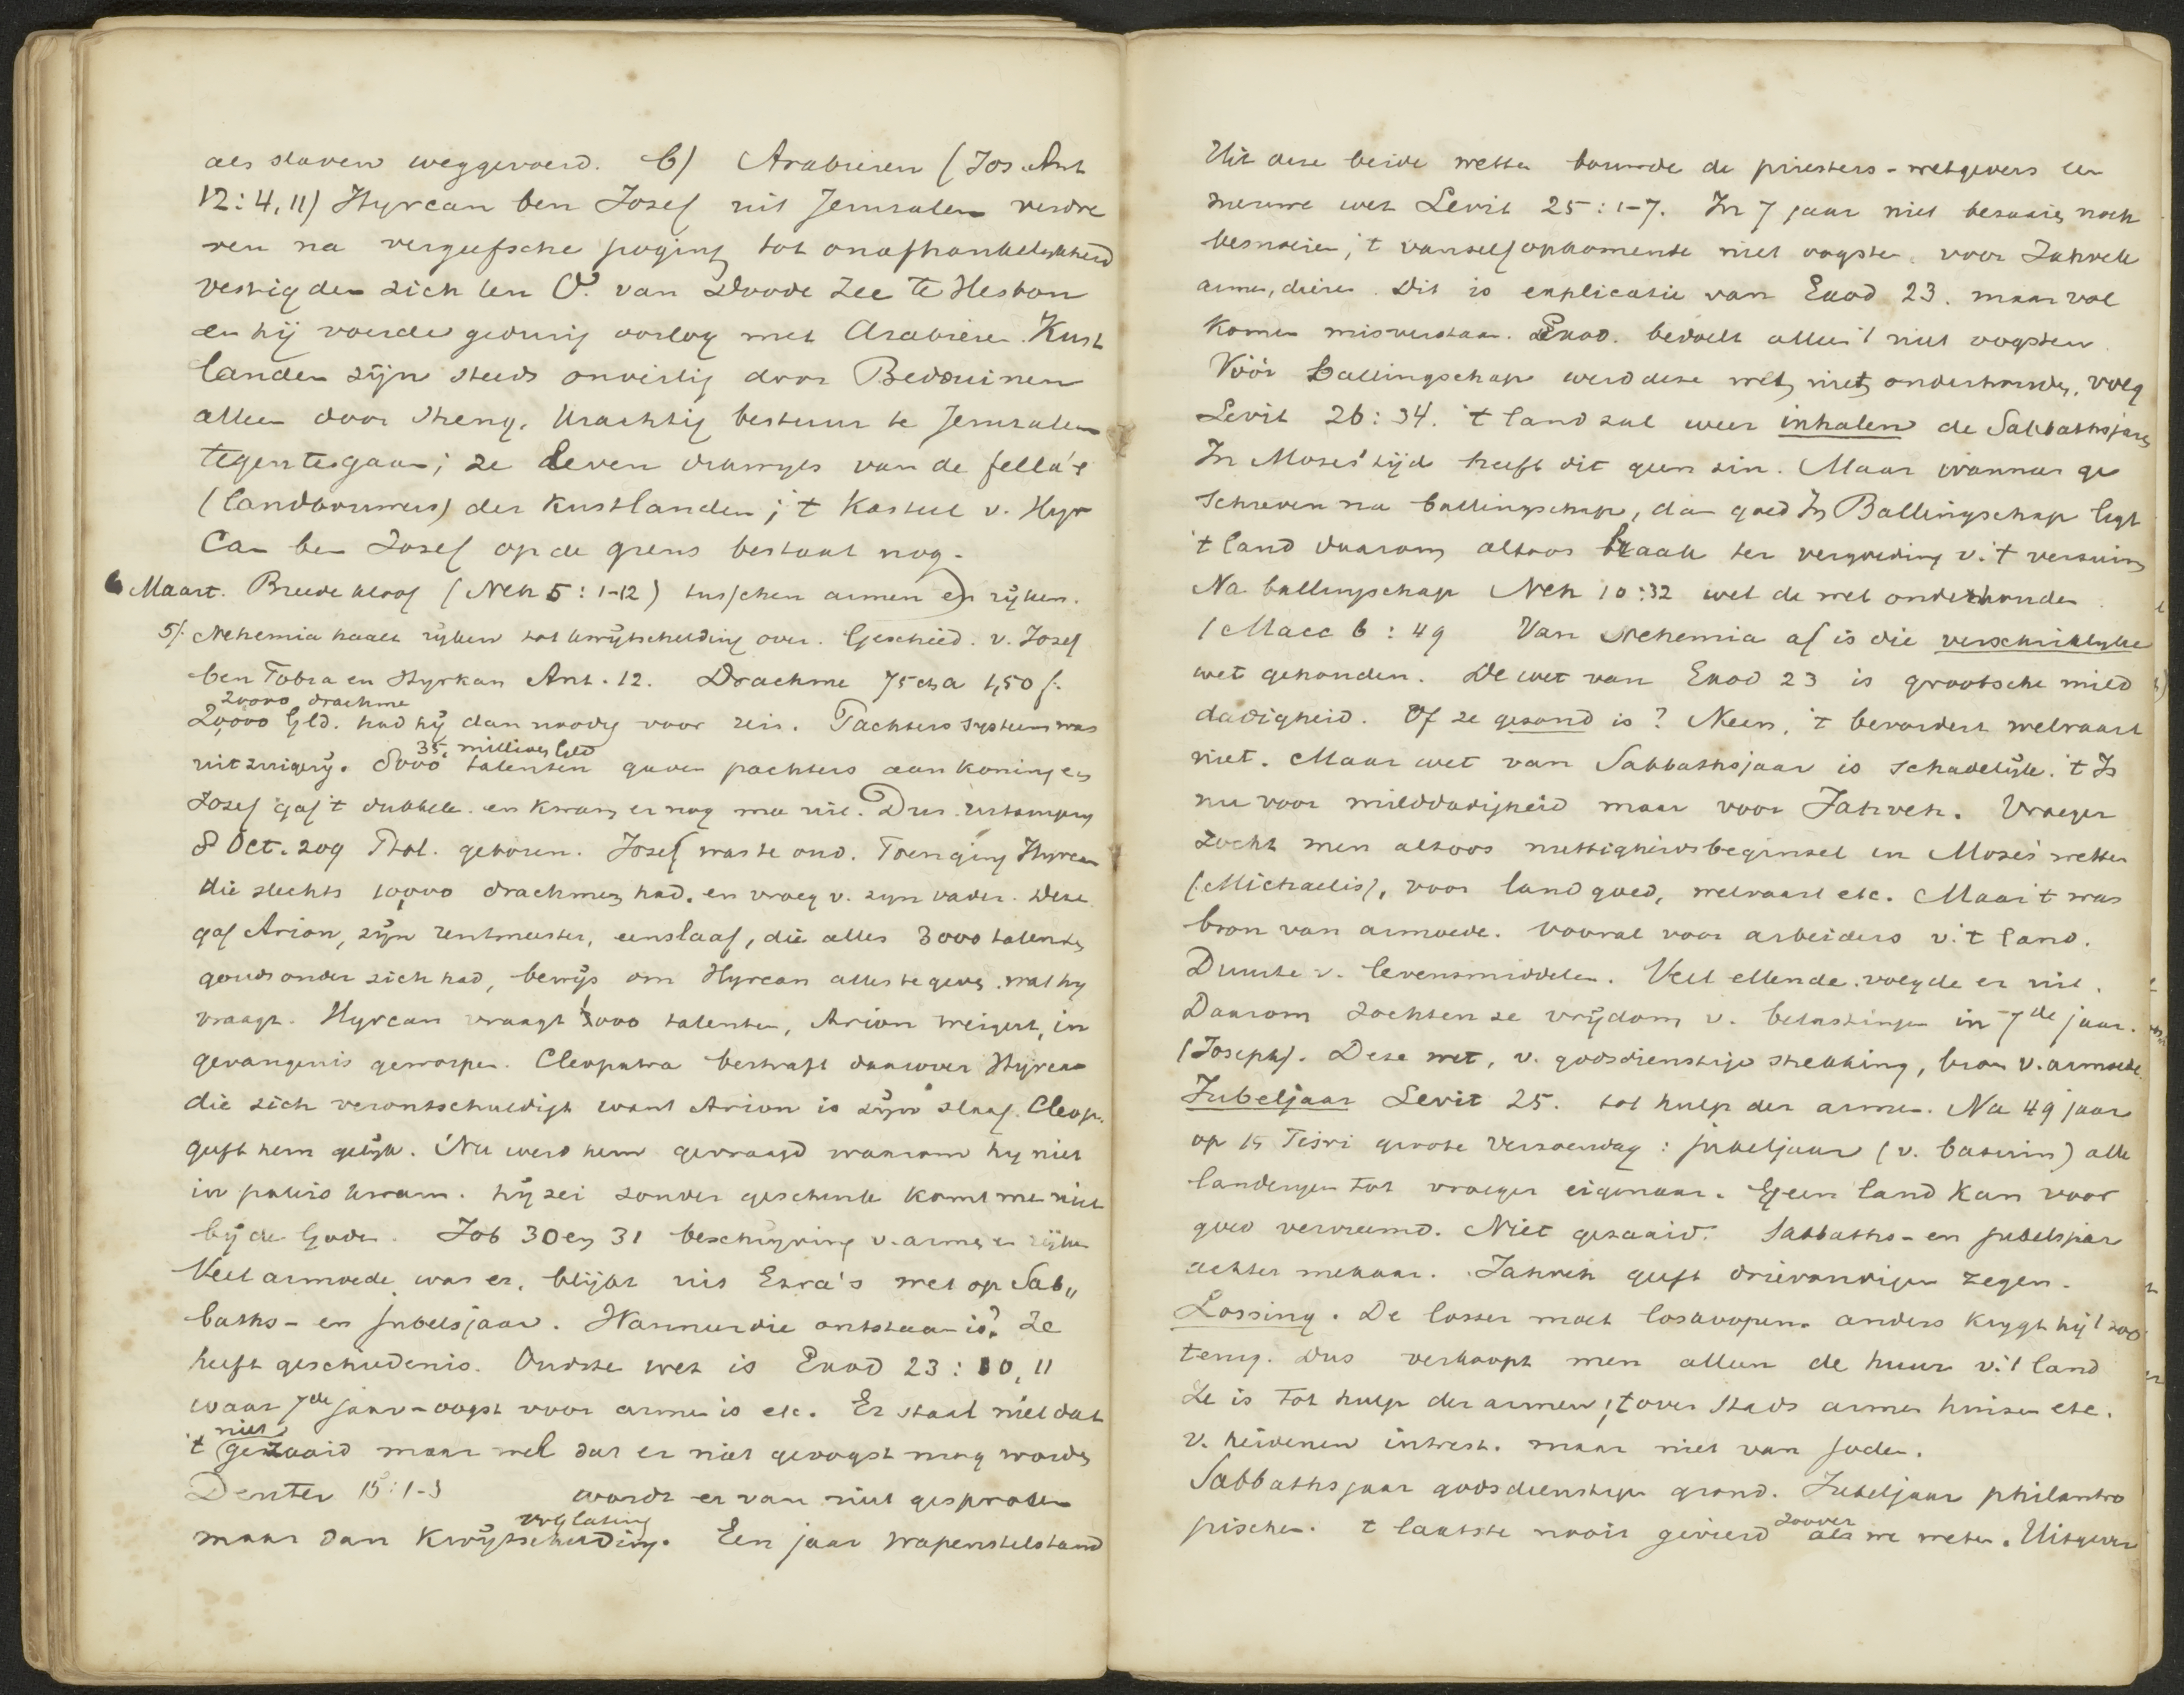 als slaven weggevoerd. b) Arabieren (Jos. Ant
12:4,11) Hyrcan ben Josef uit Jeruzalem verdre
ven na vergeefsche poging tot onafhankelykheid
vestigden zich ten O. van Doode Zee te Hesbon
en hij voerde gedurig oorlog met Arabieren. Kust
landen zijn steeds onveilig door Bedouinen
alleen door streng, krachtig bestuur te Jeruzalem
tegentegaan; ze leven van de fella's
(landbouwers) der Kustlanden; 't Kasteel v. Hyr
can ben Josef op de grens bestaat nog.
6 Maart. Breede kloof (Neh 5:1-12) tusschen armen en rijken.
5/. Nehemia haalt rijken tot kwijtschelding over. Geschied. v. Josef
ben Tobia en Hyrkan Ant. 12. Drachme 75 cts a 1,50 f.
20000 drachme
20,000 Gld. had hij dan noodig voor reis. Pachters systeem was
35 millioen Gld
uitzuigerij. 8000 talenten gaven pachters aan koning en
Josef gaf 't dubbele en kwam er nog mee uit. Dus
8 Oct. 209 Ptol. geboren. Josef was te oud. Toen ging Hyrcan
die slechts 10,000 drachmen had. en vroeg v. zyn vader. Deze
gaf Arion, zijn rentmeester, een slaaf, die alles 3000 talenten
gouds onder zich had, bewijs om Hyrcan alles te geven wat hy
vraagt. Hyrcan vraagt 1000 talenten, Arion weigert, in
gevangenis geworpen. Cleopatra bestraft daarover Hyrcan
die zich verontschuldigt want Arion is zijn slaaf. Cleop.
geeft hem gelijk. Nu werd hem gevraagd waarom hy niet
in paleis kwam. hij zei zonder geschenk komt men niet
bij de Goden. Job 30 en 31 beschrijving v. armen en rijken
Veel armoede was er, blijkt uit Ezra's wet op Sab„
baths- en Jubelsjaar. Wanneer die ontstaan is? Ze
heeft geschiedenis. Oudste wet is Exod 23:10,11
waar 7de jaar-oogst voor armen is etc. Er staat niet dat
niet
't gezaaid maar wel dat er niet geoogst mag worden
Deuter 15:1-3 wordt er van niet gesproken
vrylating
maar dan Kwijtschelding. Een jaar wapenstilstand
Uit deze beide wetten bouwde de priesters-wetgevers een
nieuwe wet Levit 25:1-7. In 7 jaar niet bezaaien noch
besnoeien, 't vanzelfopkomende niet oogsten voor Jahveh
armen, dieren. Dit is explicatie van Exod 23. maar vol
komen misverstaan. Exod. bedoelt alleen 't niet oogsten.
Vóór Ballingschap werd deze wet niet onderhouden, volg
Levit 26:34. 't land zal weer inhalen de Sabbathsjaren
In Mozes' tijd heeft dit geen zin. Maar wanneer ge
schreven na ballingschap, dan goed In Ballingschap ligt
't land daarom altoos braak ter vergoeding v. 't verzuim
Na ballingschap Neh 10:32 wel de wet onderhouden.
1 Macc 6:49 Van Nehemia af is die verschrikkelyke
wet gehouden. De wet van Exod 23 is grootsche mild
dadigheid. Of ze gezond is? Neen, 't bevordert welvaart
niet. Maar wet van Sabbathsjaar is schadelijk. 't Is
nu voor milddadigheid maar voor Jahveh. Vroeger
zocht men altoos nuttigheidsbeginsel in Mozes' wetten
(Michaelis), voor land goed, welvaart etc. Maar 't was
bron van armoede. vooral voor arbeiders v. 't land.
Duurte v. levensmiddelen. Veel ellende volgde er uit.
Daarom zochten ze vrijdom v. belastingen in 7de jaar.
(Joseph). Deze wet, v. godsdienstige strekking, bron v. armoede.
Jubeljaar Levit 25. tot hulp der armen. Na 49 jaar
op 15 Tisri groote Verzoendag: jubeljaar (v. bazuin) alle
landeryen tot vroeger eigenaar. Geen land kan voor
goed vervreemd. Niet gezaaid. Sabbaths- en jubelsjaar
achter mekaar. Jahveh geeft drievoudigen zegen.
Lossing. De losser moet loskoopen. anders krygt hij 't zoo
terug. Dus verkoopt men alleen de huur v. 't land
Ze is tot hulp der armen; 't over stads armen huizen etc.
v. heidenen intrest. maar niet van Joden.
Sabbathsjaar godsdienstigen grond. Jubeljaar philantro
zoover
pischen. 't laatste nooit gevierd als we weten. Uitgever